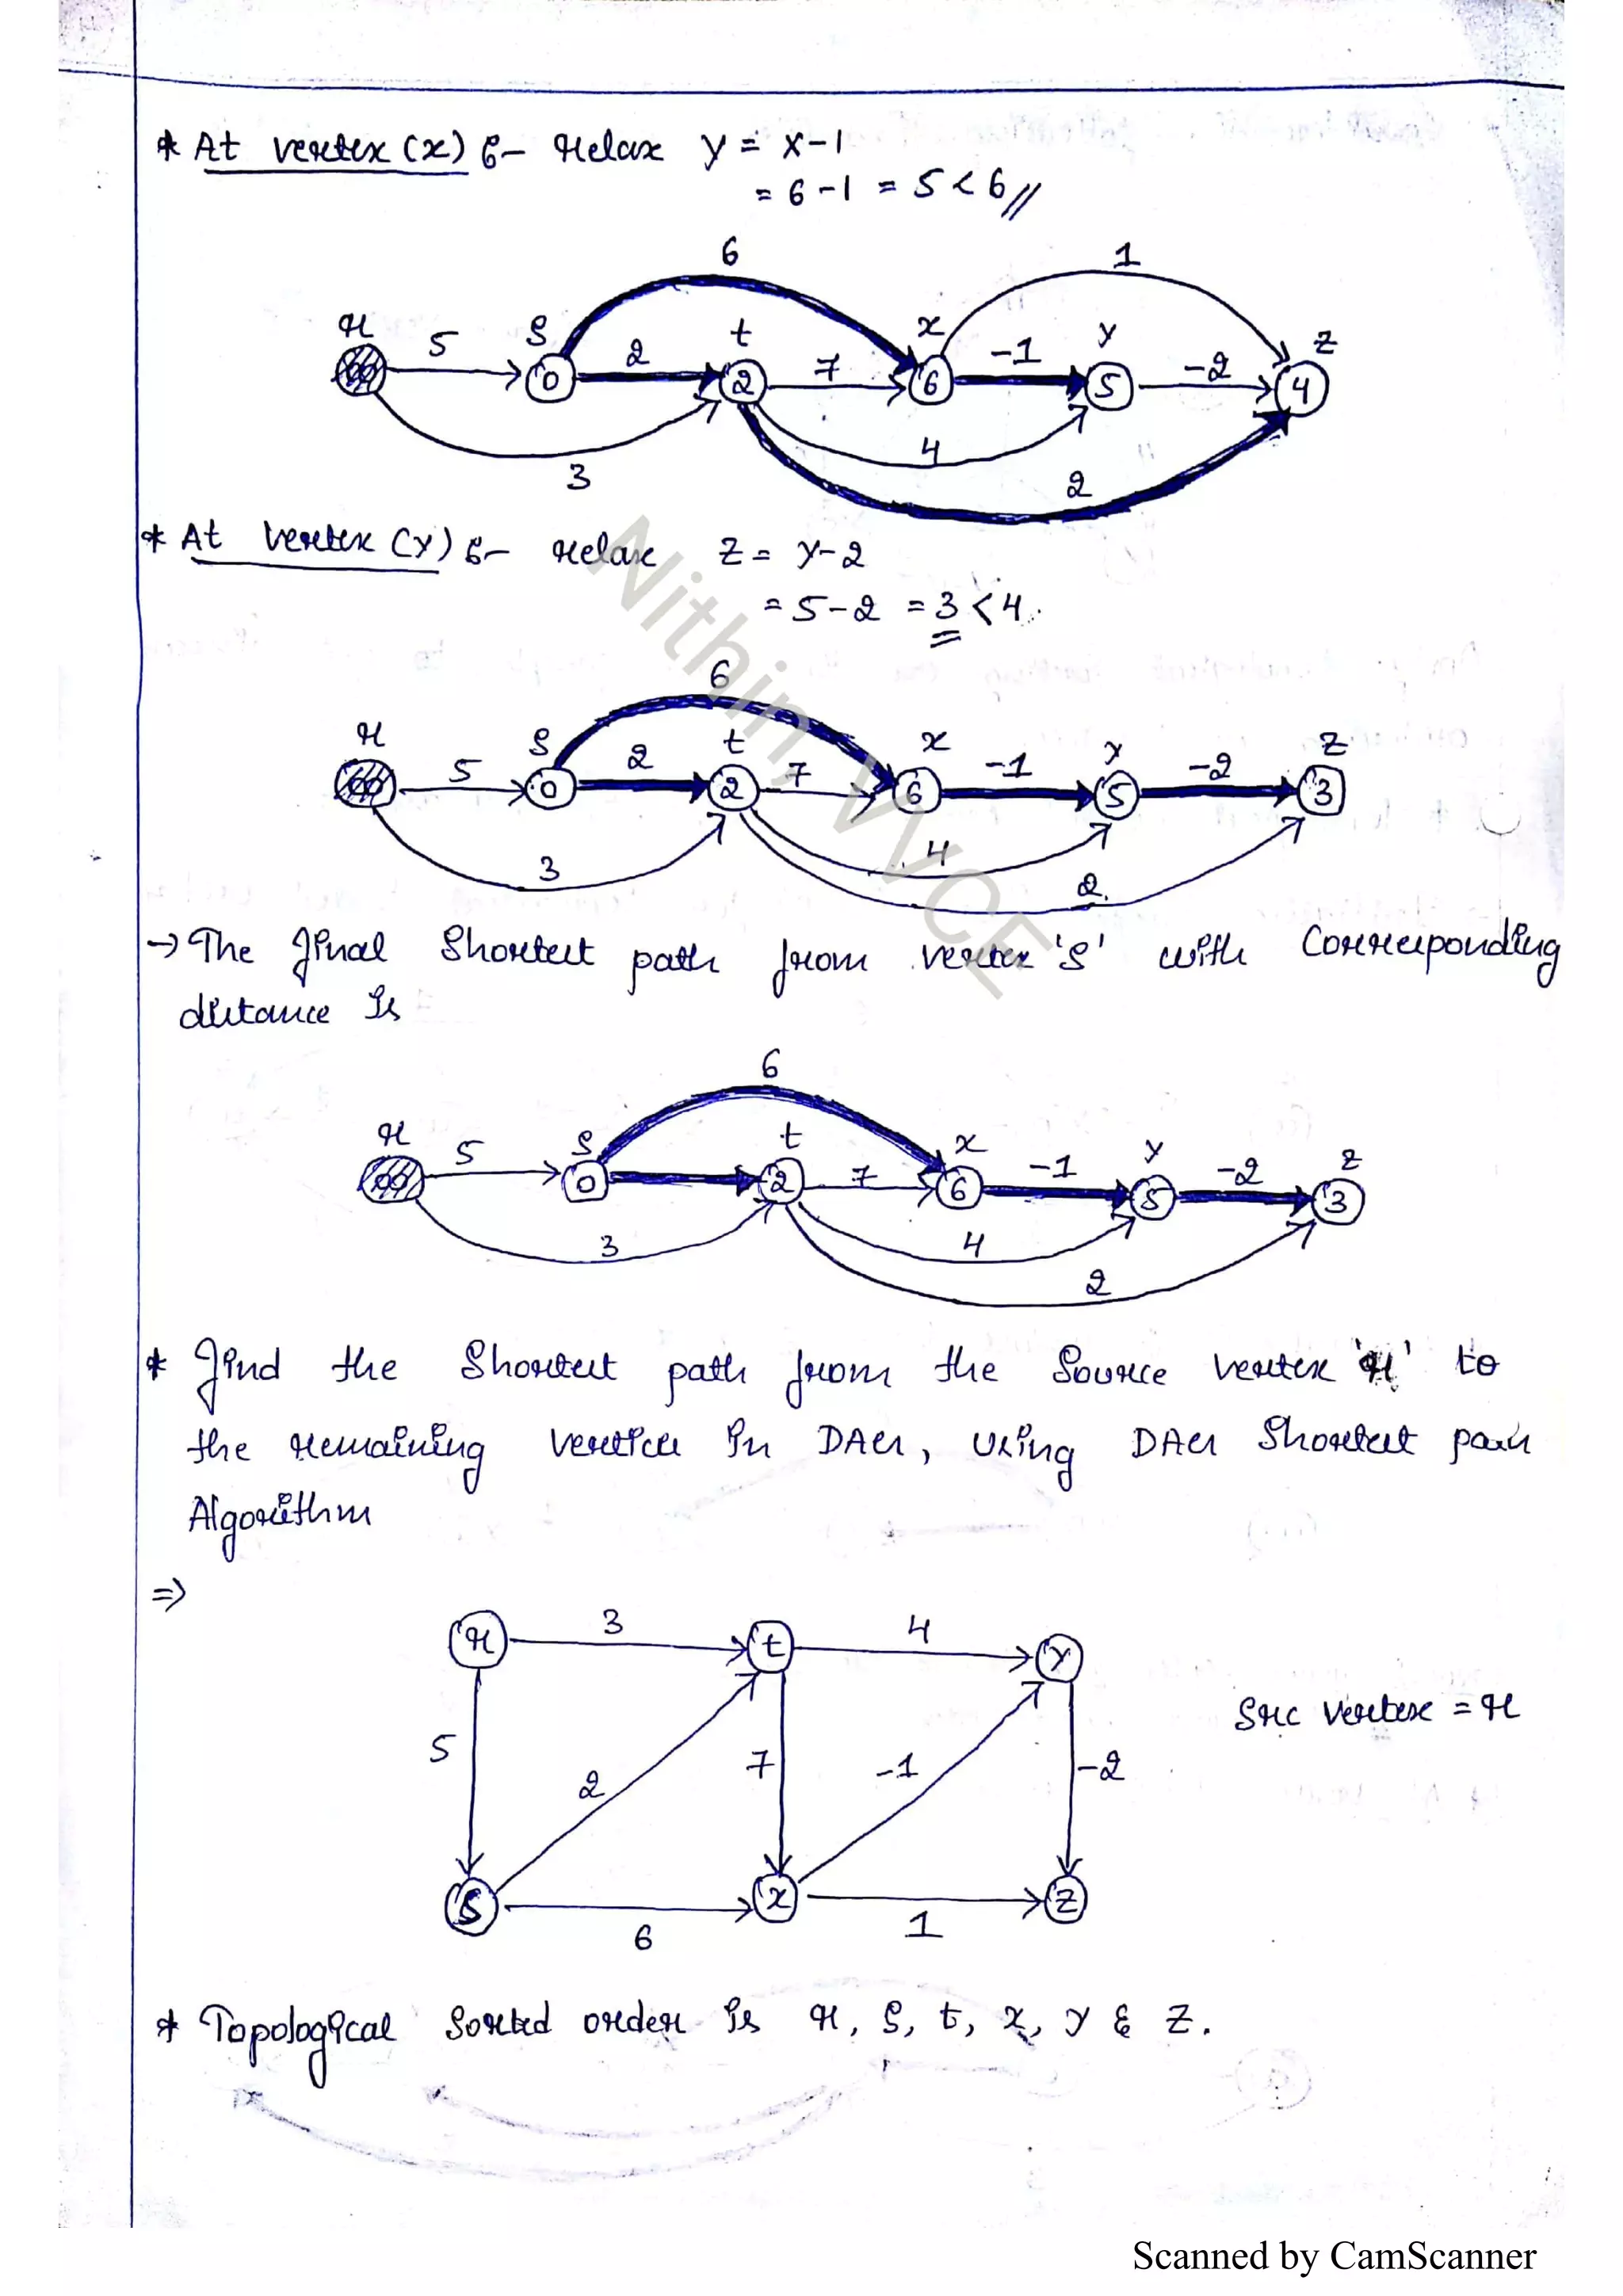 * At vertex (x) :- relax y = x-1
= 6-1 = 5 < 6 //
6
1
r 5 s 2 t 7 x -1 y -2 z
∞ 0 2 6 5 4
3
4
2
* At vertex (y) :- relax z = y-2
= 5-2 = 3 < 4.
6
r 5 s 2 t 7 x -1 y -2 z
∞ 0 2 6 5 3
3
4
2
Nithin, VVCE
→ The final shortest path from vertex 's' with corresponding
distance is
6
r 5 s t 7 x -1 y -2 z
∞ 0 2 6 5 3
3
4
2
* Find the shortest path from the source vertex 'r' to
the remaining vertices in DAG, using DAG shortest path
Algorithm
⇒
r 3 t 4 y
5 2 7 -1 -2
src vertex = r
s 6 x 1 z
* Topological sorted order is r, s, t, x, y & z.
Scanned by CamScanner